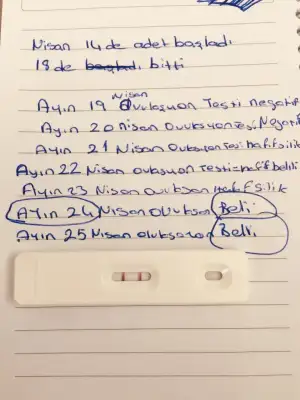 Nisan 14 de adet başladı
18 de başladı bitti
Nisan
Ayın 19 Ovulasyon Testi negatif
Ayın 20 nisan Negatif
Ayın 21 Nisan hafif silik
Ayın 22 Nisan ovulasyon Testi hafif belli
Ayın 23 Nisan Hafif silik
Ayın 24 Nisan Beli
Ayın 25 Nisan Belli